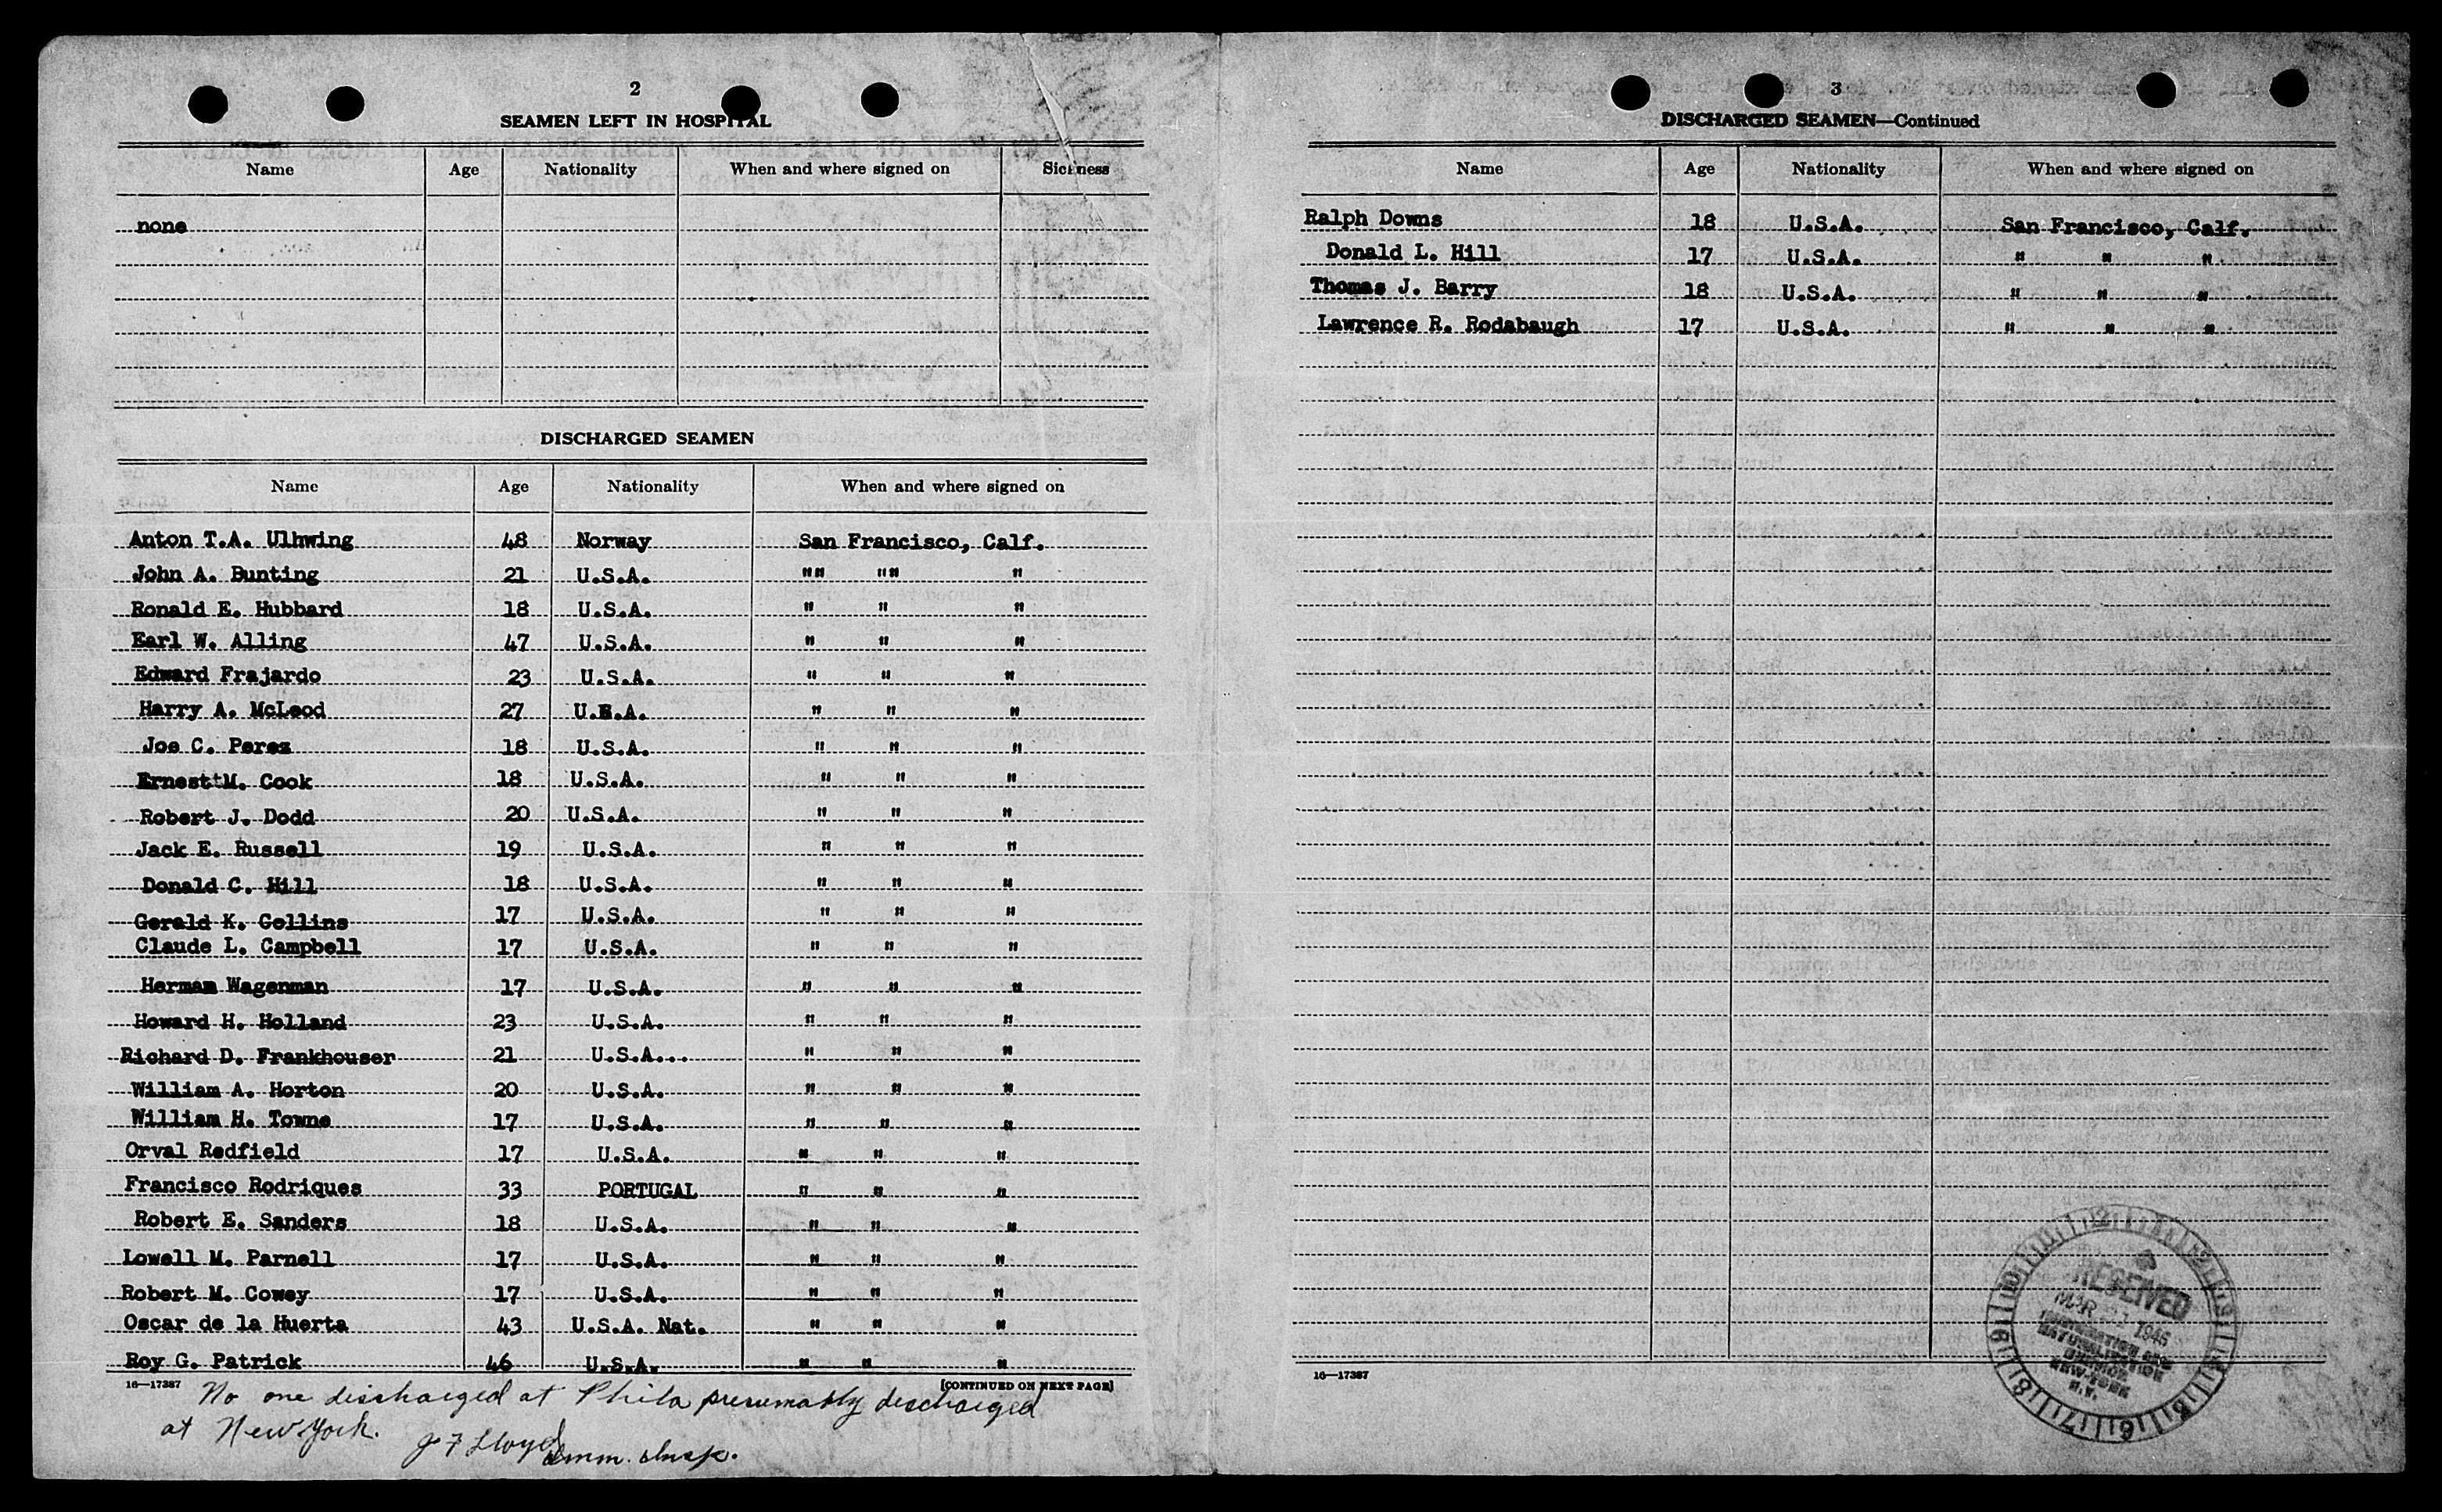 2
SEAMEN LEFT IN HOSPITAL
Name Age Nationality When and where signed on Sickness
none
DISCHARGED SEAMEN
Name Age Nationality When and where signed on
Anton T.A. Ulhwing 48 Norway San Francisco, Calf.
John A. Bunting 21 U.S.A. "" "" "
Ronald E. Hubbard 18 U.S.A. " " "
Earl W. Alling 47 U.S.A. " " "
Edward Frajardo 23 U.S.A. " " "
Harry A. McLeod 27 U.S.A. " " "
Joe C. Perez 18 U.S.A. " " "
Ernest M. Cook 18 U.S.A. " " "
Robert J. Dodd 20 U.S.A. " " "
Jack E. Russell 19 U.S.A. " " "
Donald C. Hill 18 U.S.A. " " "
Gerald K. Collins 17 U.S.A. " " "
Claude L. Campbell 17 U.S.A. " " "
Herman Wagenman 17 U.S.A. " " "
Howard H. Holland 23 U.S.A. " " "
Richard D. Frankhouser 21 U.S.A... " " "
William A. Horton 20 U.S.A. " " "
William H. Towne 17 U.S.A. " " "
Orval Redfield 17 U.S.A. " " "
Francisco Rodriques 33 PORTUGAL " " "
Robert E. Sanders 18 U.S.A. " " "
Lowell M. Parnell 17 U.S.A. " " "
Robert M. Cowey 17 U.S.A. " " "
Oscar de la Huerta 43 U.S.A. Nat. " " "
Roy G. Patrick 46 U.S.A. " " "
16—17387 [CONTINUED ON NEXT PAGE]
No one discharged at Phila presumably discharged
at New York.
J F Lloyd Imm. Insp.
3
DISCHARGED SEAMEN—Continued
Name Age Nationality When and where signed on
Ralph Downs 18 U.S.A. San Francisco, Calf.
Donald L. Hill 17 U.S.A. " " "
Thomas J. Barry 18 U.S.A. " " "
Lawrence R. Rodabaugh 17 U.S.A. " " "
RECEIVED
MAR 1946
IMMIGRATION AND
NATURALIZATION
SERVICE
NEW YORK
N.Y.
16—17387